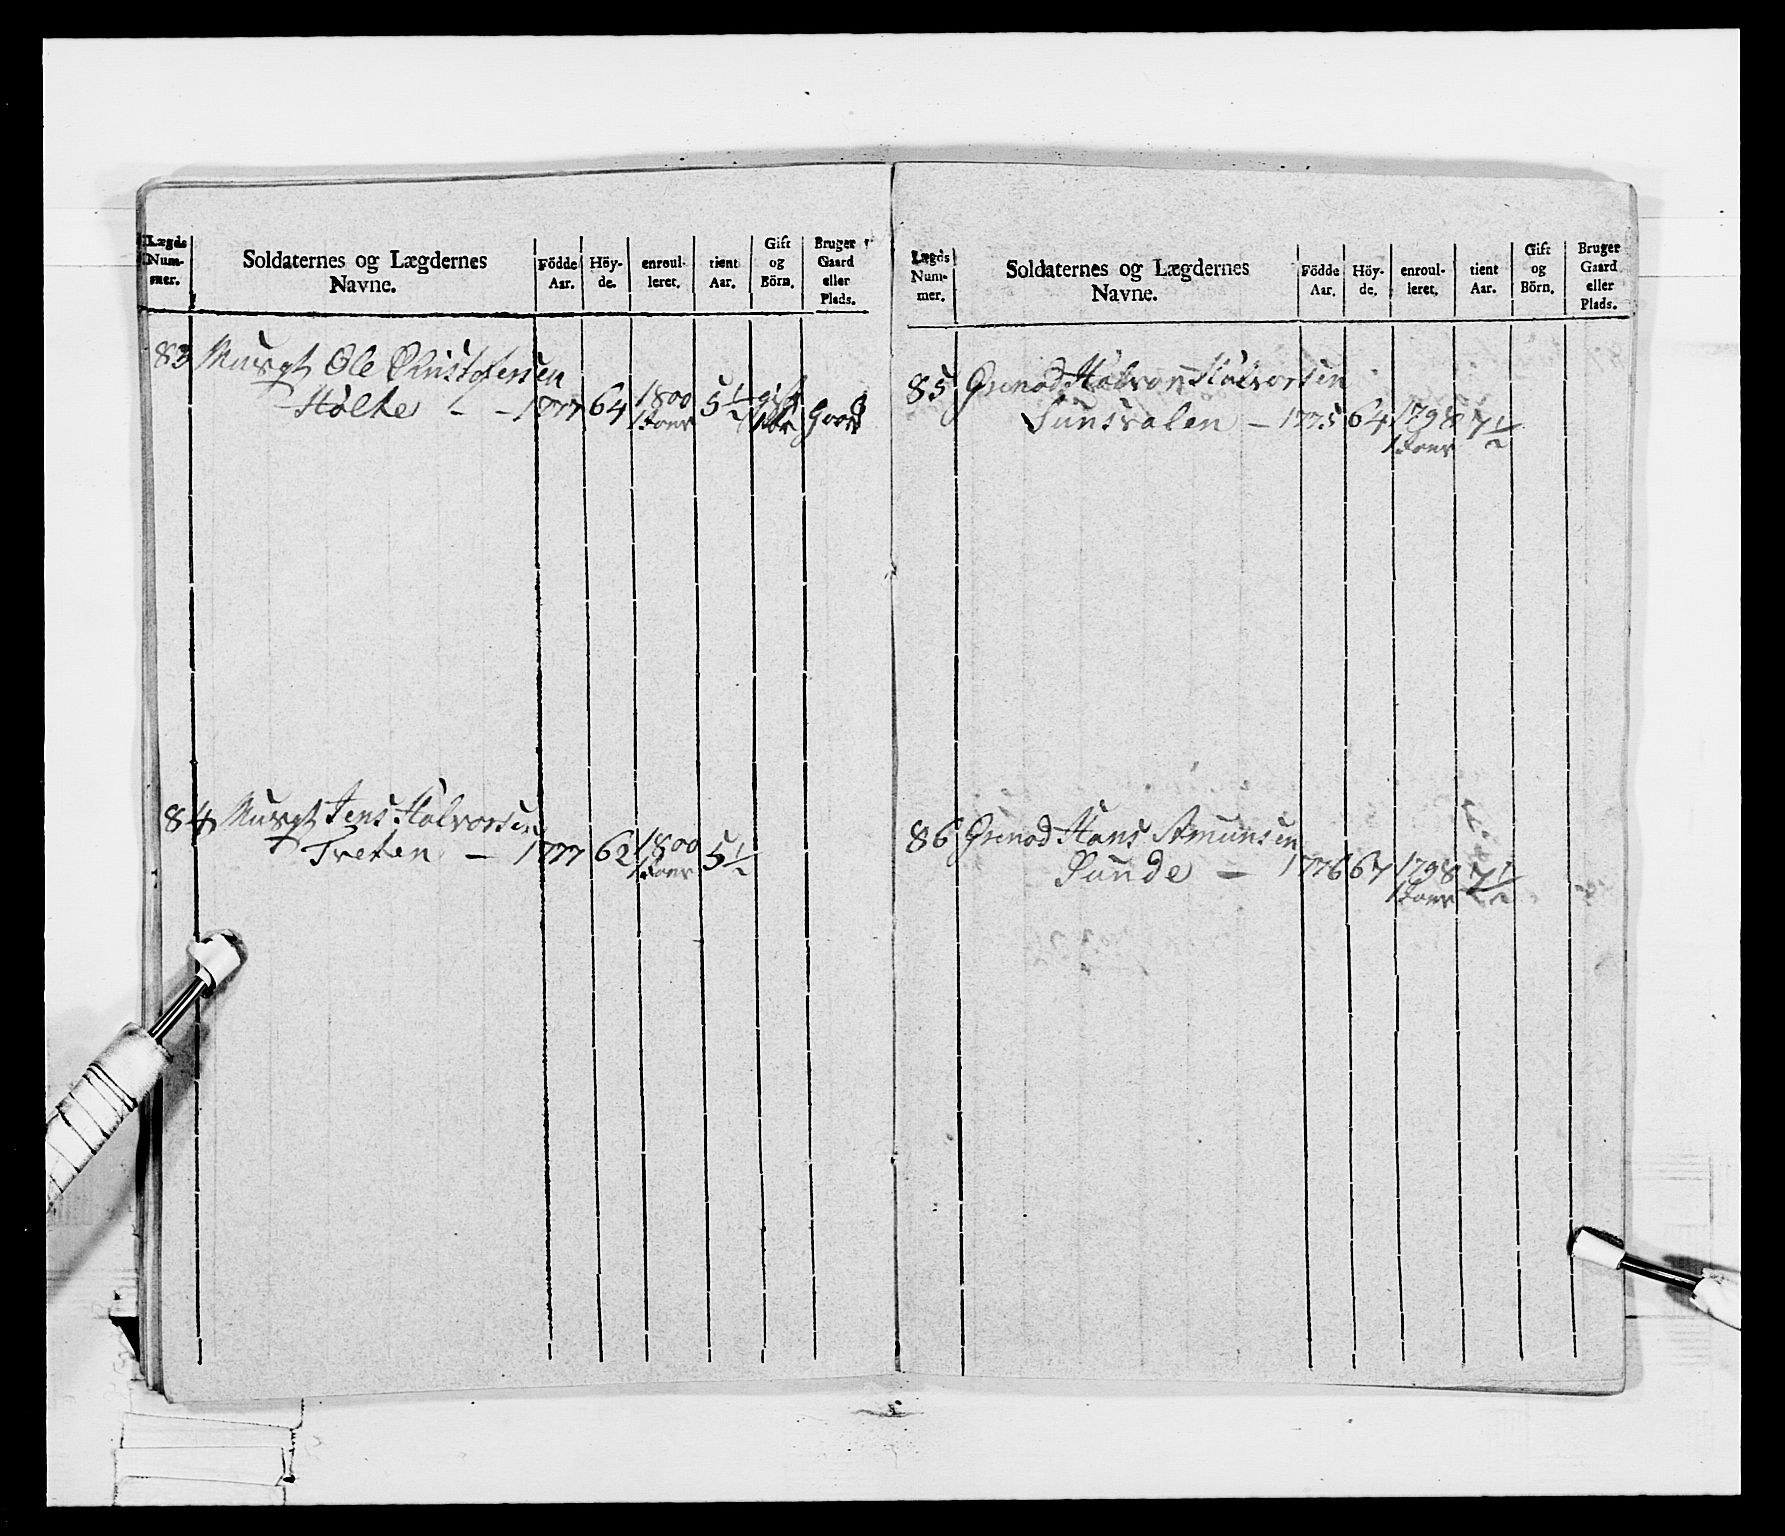 Lægds Num- mer.
Soldaternes og Lægdernes Navne.
Födde Aar.
Höy- de.
enroul- leret.
tient Aar.
Gift og Börn.
Bruger Gaard eller Plads.
83 Musqt Ole Christophersen
Holte - - 1777 64 1800 5 1/2 gift
1 Janr
84 Musqt Jens Halvorsen
Treten - 1777 62 1800 5 1/2
1 Janr
Lægds Num- mer.
Soldaternes og Lægdernes Navne.
Födde Aar.
Höy- de.
enroul- leret.
tient Aar.
Gift og Börn.
Bruger Gaard eller Plads.
85 Grenad Halvor Halvorsen
Sunsvalen - 1775 64 1798 7 1/2
1 Janr
86 Grenad Hans Amunsen
- 1776 67 1798 7 1/2
1 Janr